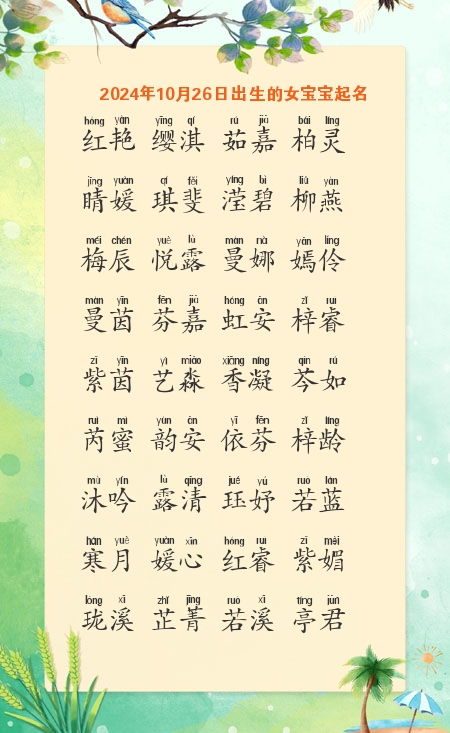 2024年10月26日出生的女宝宝起名
hóng yàn yīng qí rú jiā bǎi líng
红艳 缨淇 茹嘉 柏灵
jīng yuàn qí fěi yíng bì liǔ yàn
睛媛 琪斐 滢碧 柳燕
méi chén yuè lù màn nà yān líng
梅辰 悦露 曼娜 嫣伶
màn yīn fēn jiā hóng ān zǐ ruì
曼茵 芬嘉 虹安 梓睿
zǐ yīn yì miǎo xiāng níng qín rú
紫茵 艺淼 香凝 芩如
ruì mì yùn ān yī fēn zǐ líng
芮蜜 韵安 依芬 梓龄
mù yín lù qīng jué yú ruò lán
沐吟 露清 珏妤 若蓝
hán yuè yuàn xīn hóng ruì zǐ mèi
寒月 媛心 红睿 紫媚
lóng xī zhǐ jīng ruò xī tíng jūn
珑溪 芷菁 若溪 亭君